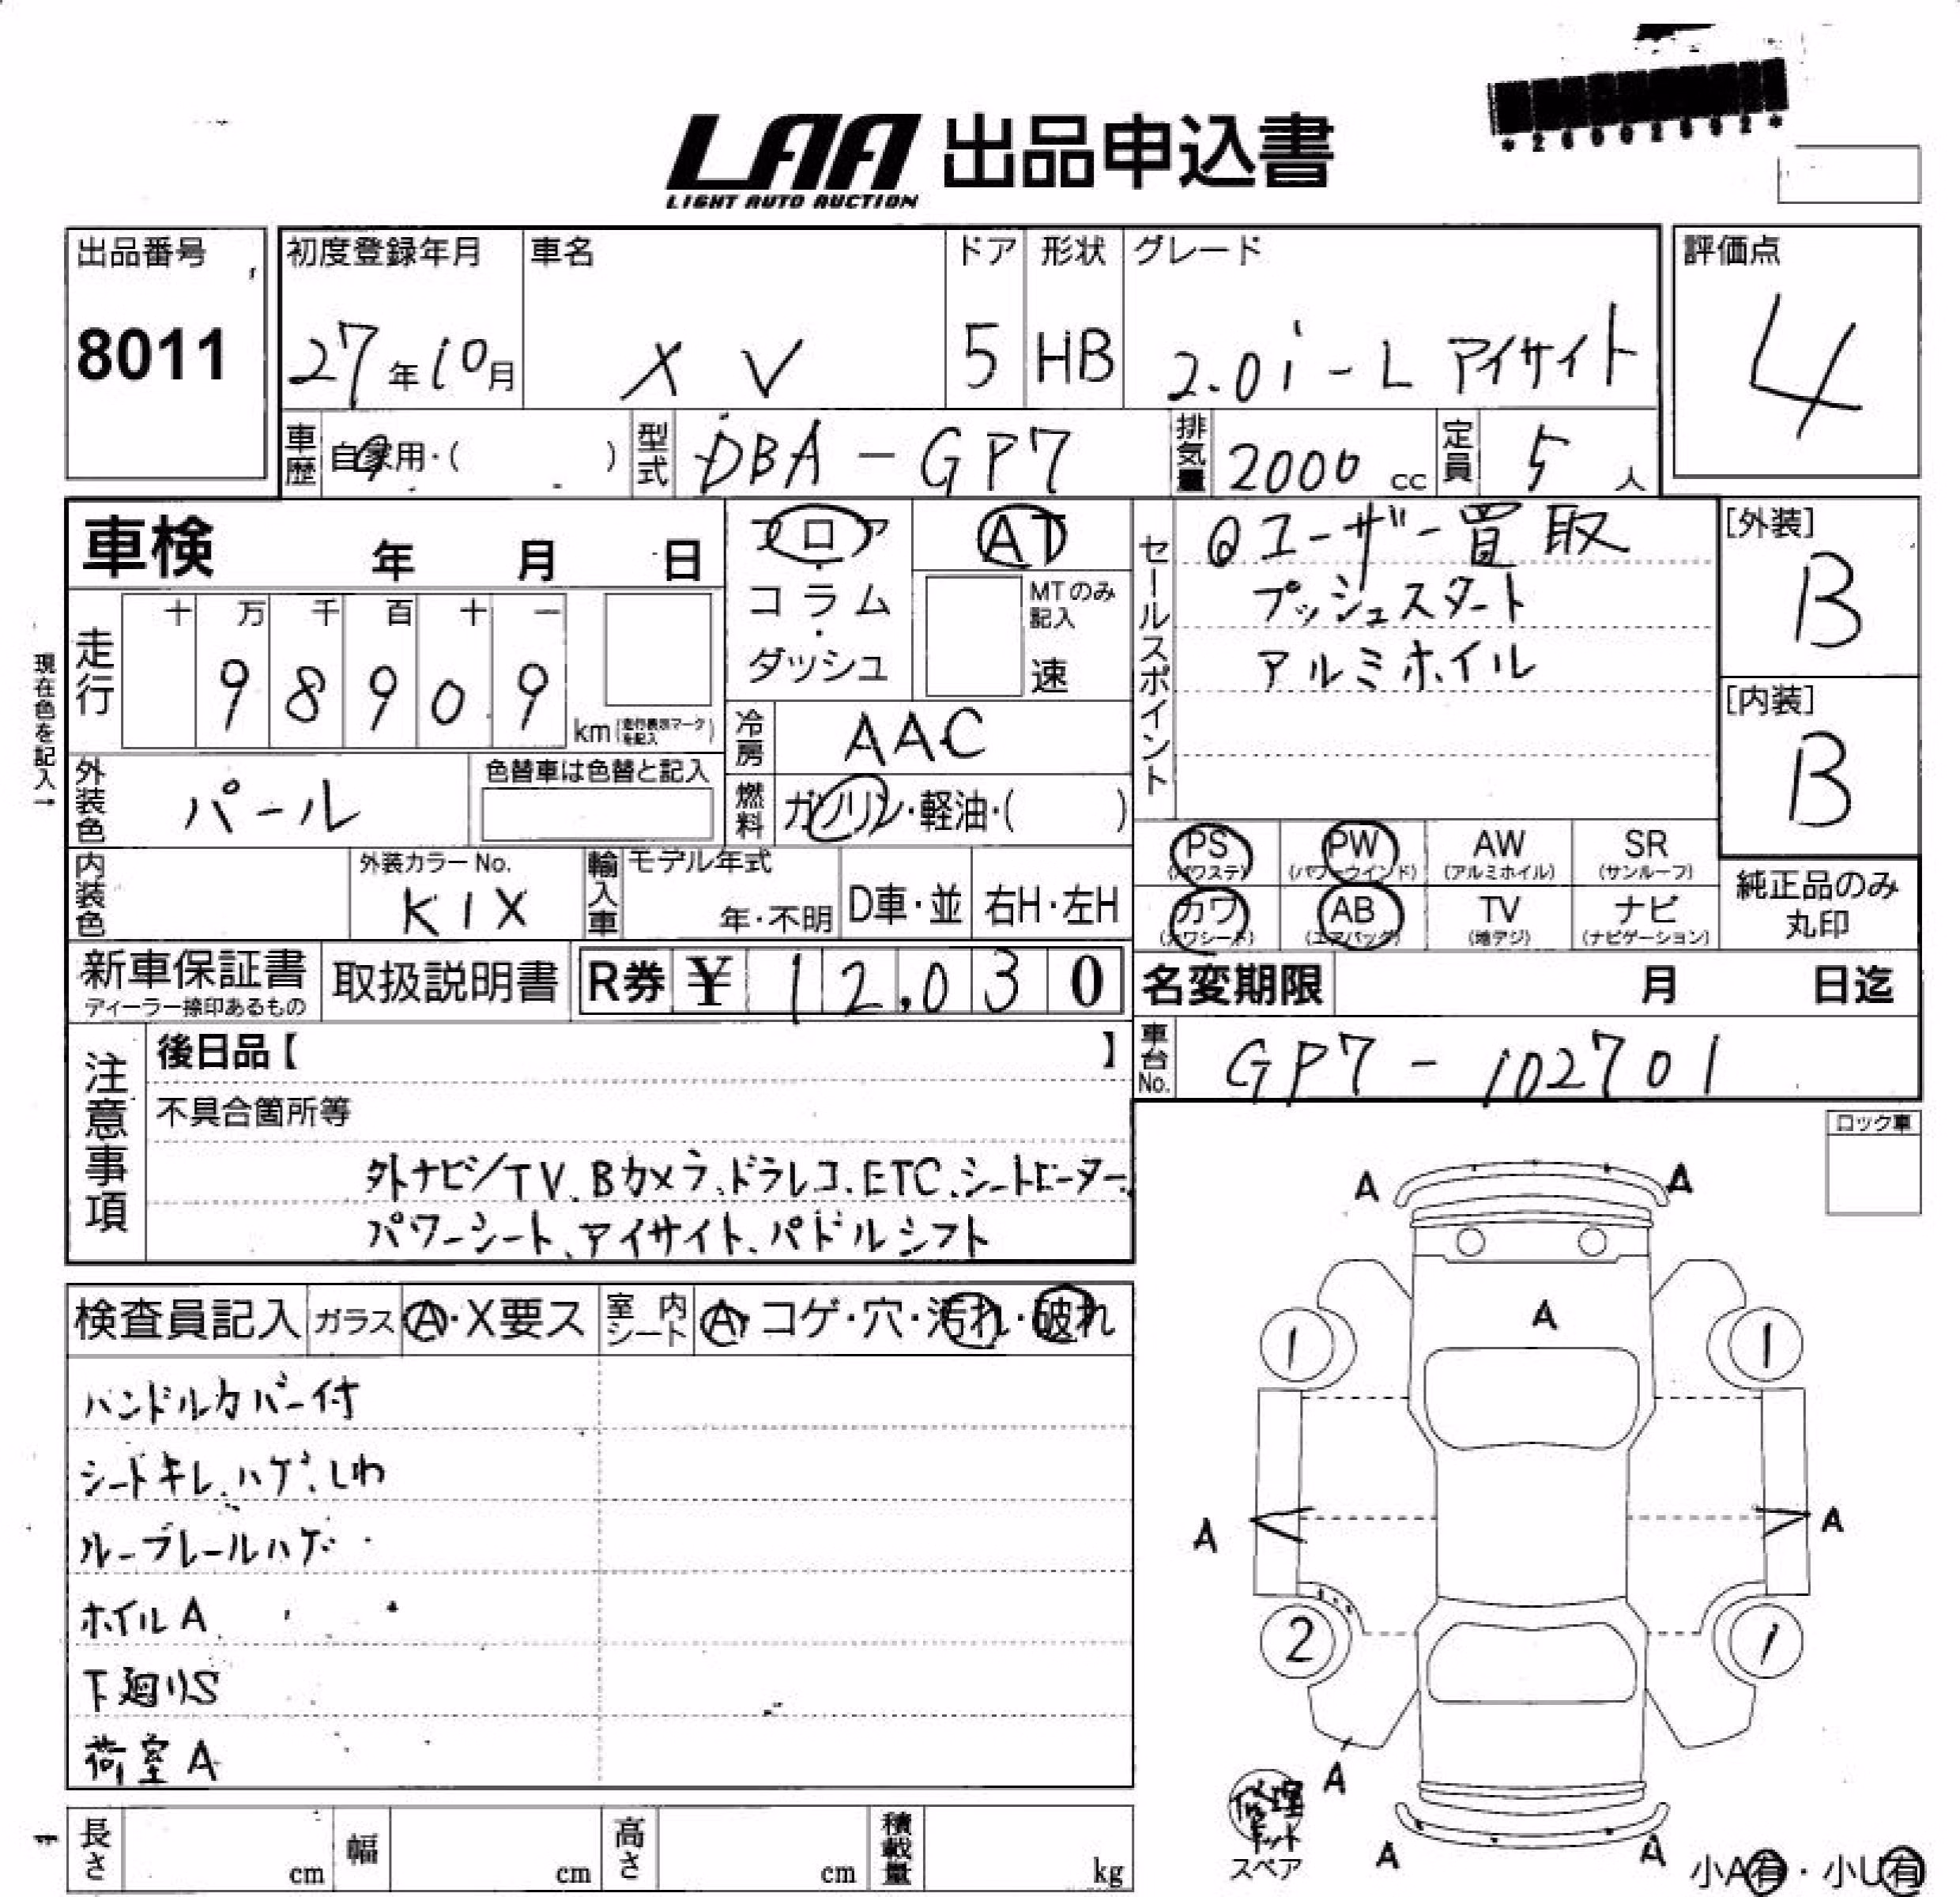 LAA 出品申込書
LIGHT AUTO AUCTION
*26002692*
出品番号
8011
初度登録年月
27年10月
車名
XV
ドア
5
形状
HB
グレード
2.0i-L アイサイト
評価点
4
車歴
自家用・( )
型式
DBA-GP7
排気量
2000 cc
定員
5人
車検 年 月 日
フロア・コラム・ダッシュ
AT
MTのみ記入
速
セールスポイント
ユーザー買取
プッシュスタート
アルミホイル
[外装]
B
[内装]
B
現在色を記入→
走行
十 万 千 百 十 一
9 8 9 0 9
km (走行表示マークを記入)
冷房
AAC
外装色
パール
色替車は色替と記入
燃料
ガソリン・軽油・( )
PS (パワステ)
PW (パワーウインド)
AW (アルミホイル)
SR (サンルーフ)
カワ (カワシート)
AB (エアバッグ)
TV (地デジ)
ナビ (ナビゲーション)
純正品のみ丸印
内装色
外装カラーNo.
K1X
輸入車
モデル年式
年・不明
D車・並
右H・左H
新車保証書
ディーラー捺印あるもの
取扱説明書
R券 ¥ 12,030
名変期限 月 日迄
車台No.
GP7-102701
注意事項
後日品【 】
不具合箇所等
外ナビ/TV、Bカメラ、ドラレコ、ETC、シートヒーター、
パワーシート、アイサイト、パドルシフト
ロック車
検査員記入
ガラス
A・X要ス
室内シート
A・コゲ・穴・汚れ・破れ
ハンドルカバー付
シートキレ、ハゲ、しわ
ルーフレールハゲ
ホイルA
下廻りS
荷室A
A A
A
1 1
A A
2 1
A
A A
修理キット
スペア
小A有・小U有
長さ cm
幅 cm
高さ cm
積載量 kg